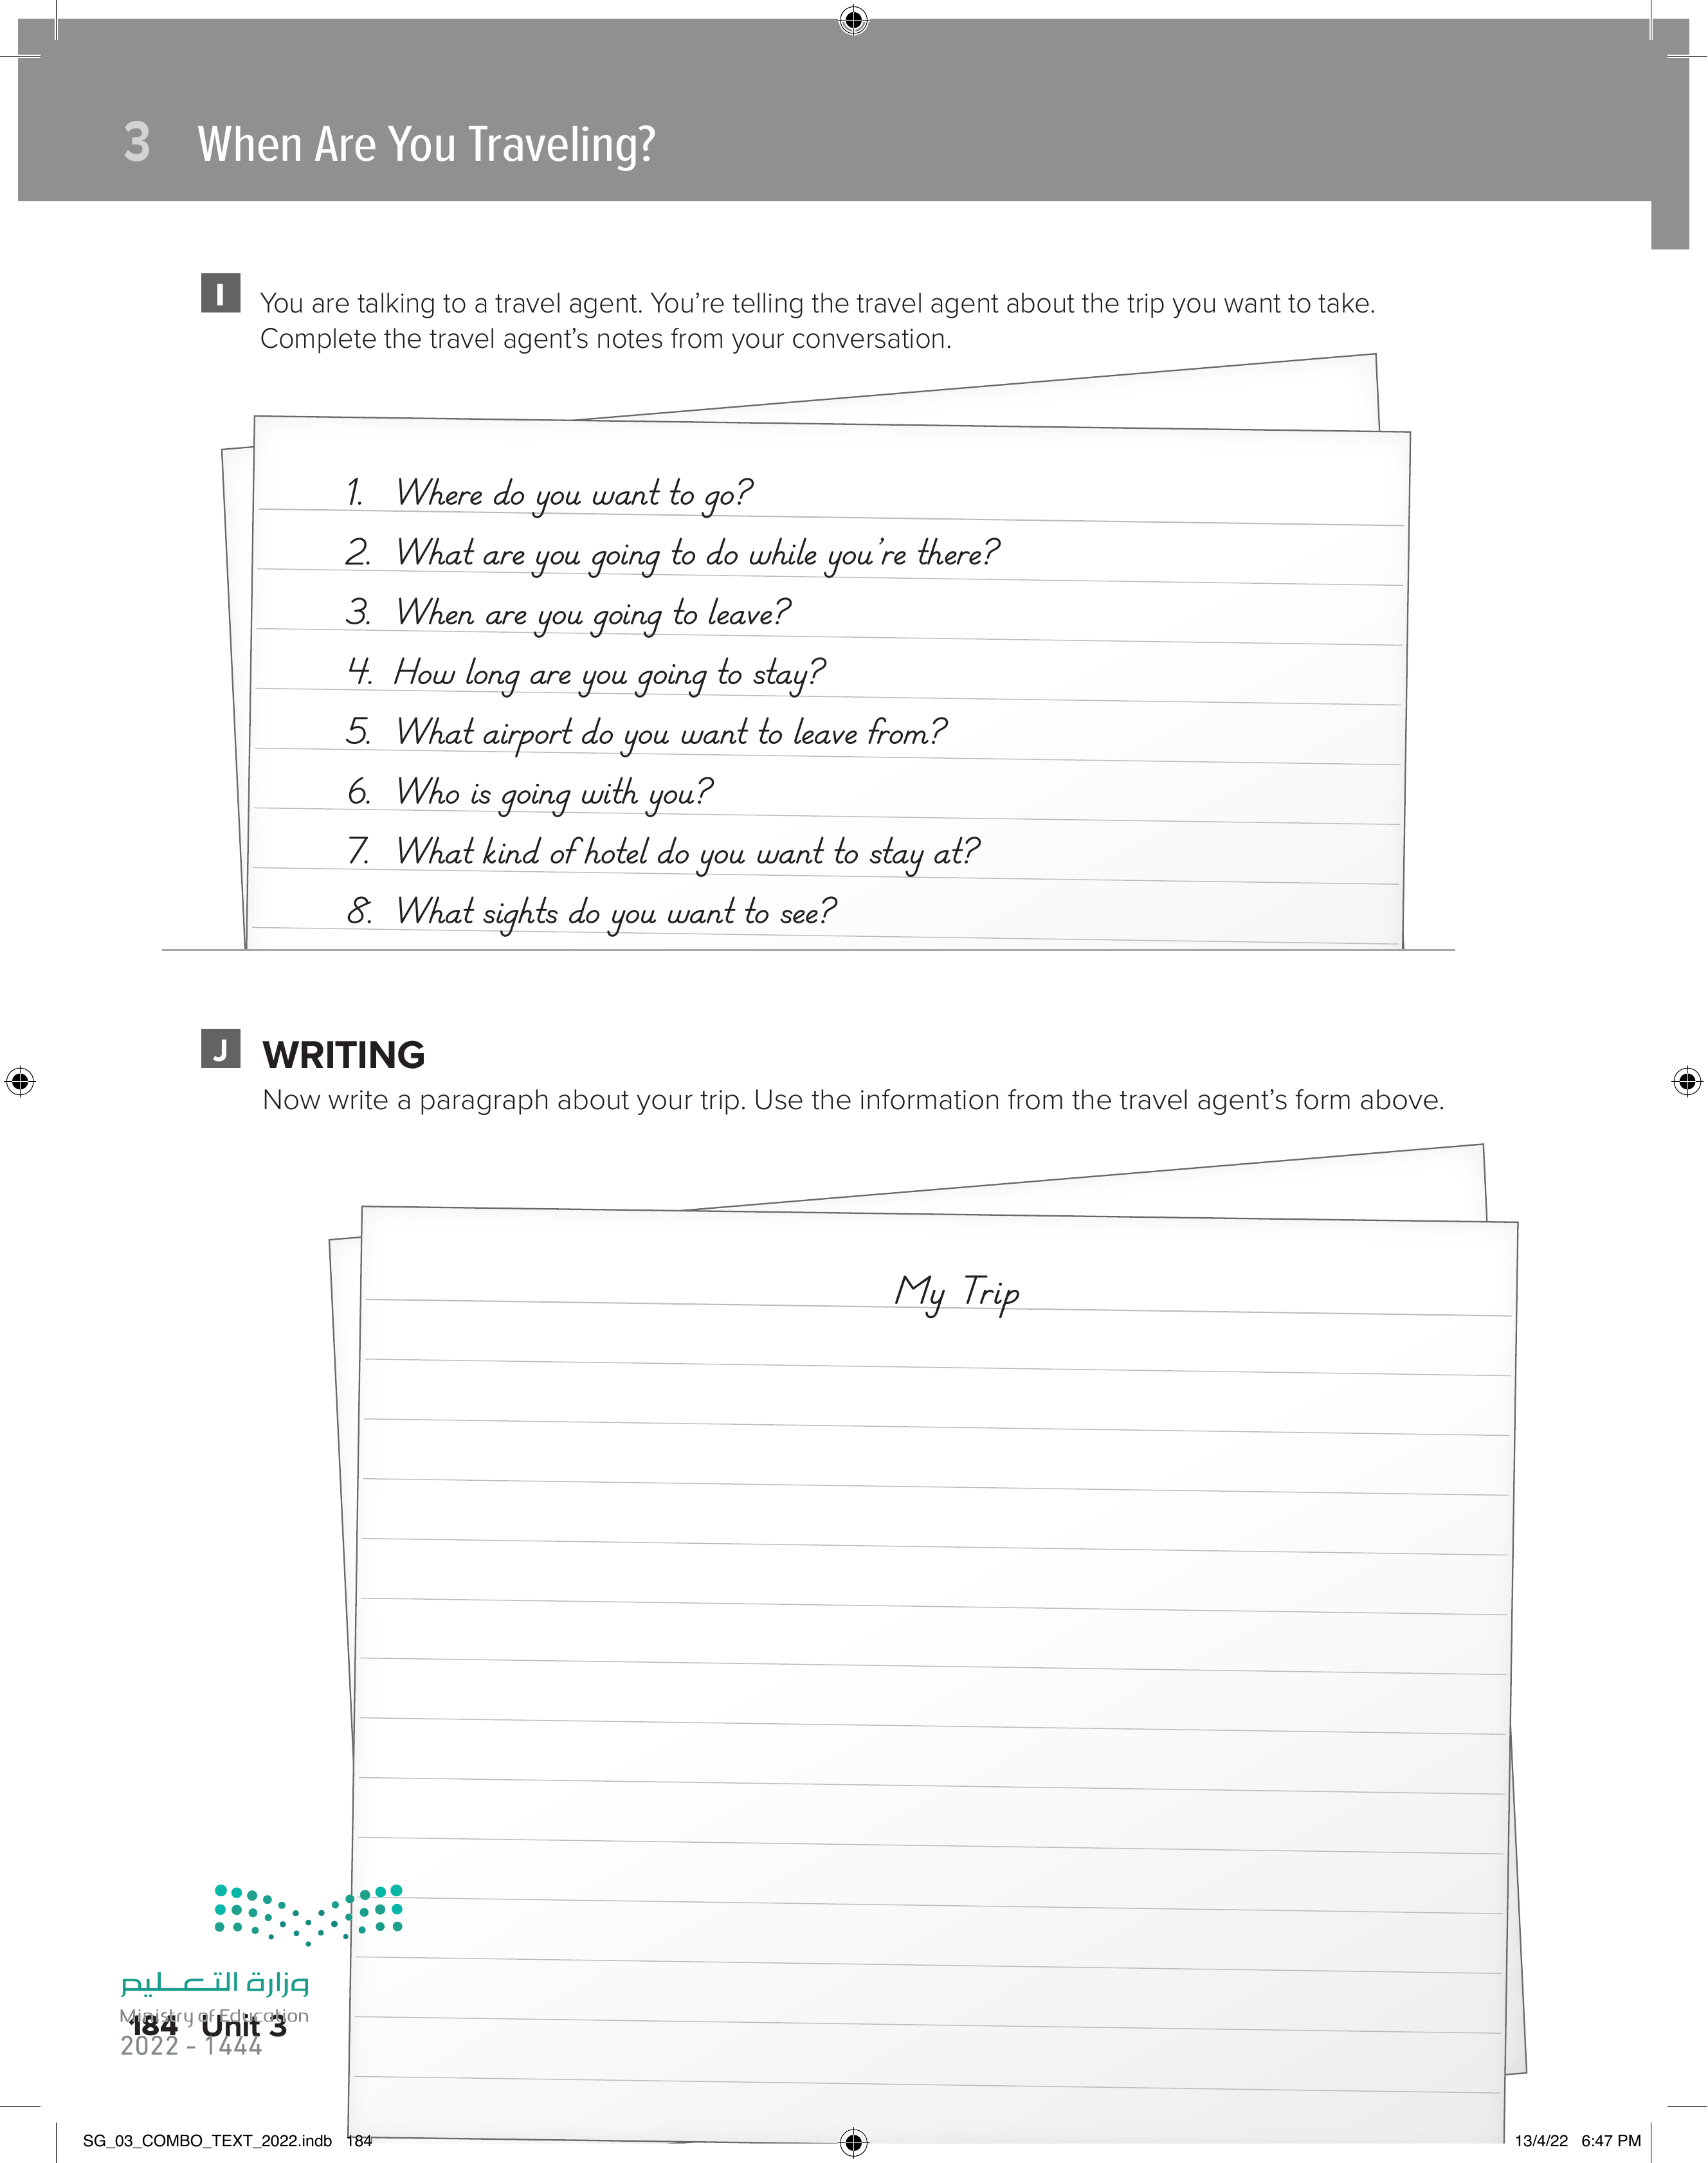 3 When Are You Traveling?
I You are talking to a travel agent. You're telling the travel agent about the trip you want to take.
Complete the travel agent's notes from your conversation.
1. Where do you want to go?
2. What are you going to do while you're there?
3. When are you going to leave?
4. How long are you going to stay?
5. What airport do you want to leave from?
6. Who is going with you?
7. What kind of hotel do you want to stay at?
8. What sights do you want to see?
J WRITING
Now write a paragraph about your trip. Use the information from the travel agent's form above.
My Trip
وزارة التعليم
Ministry of Education
184 Unit 3
2022 - 1444
SG_03_COMBO_TEXT_2022.indb 184
13/4/22 6:47 PM